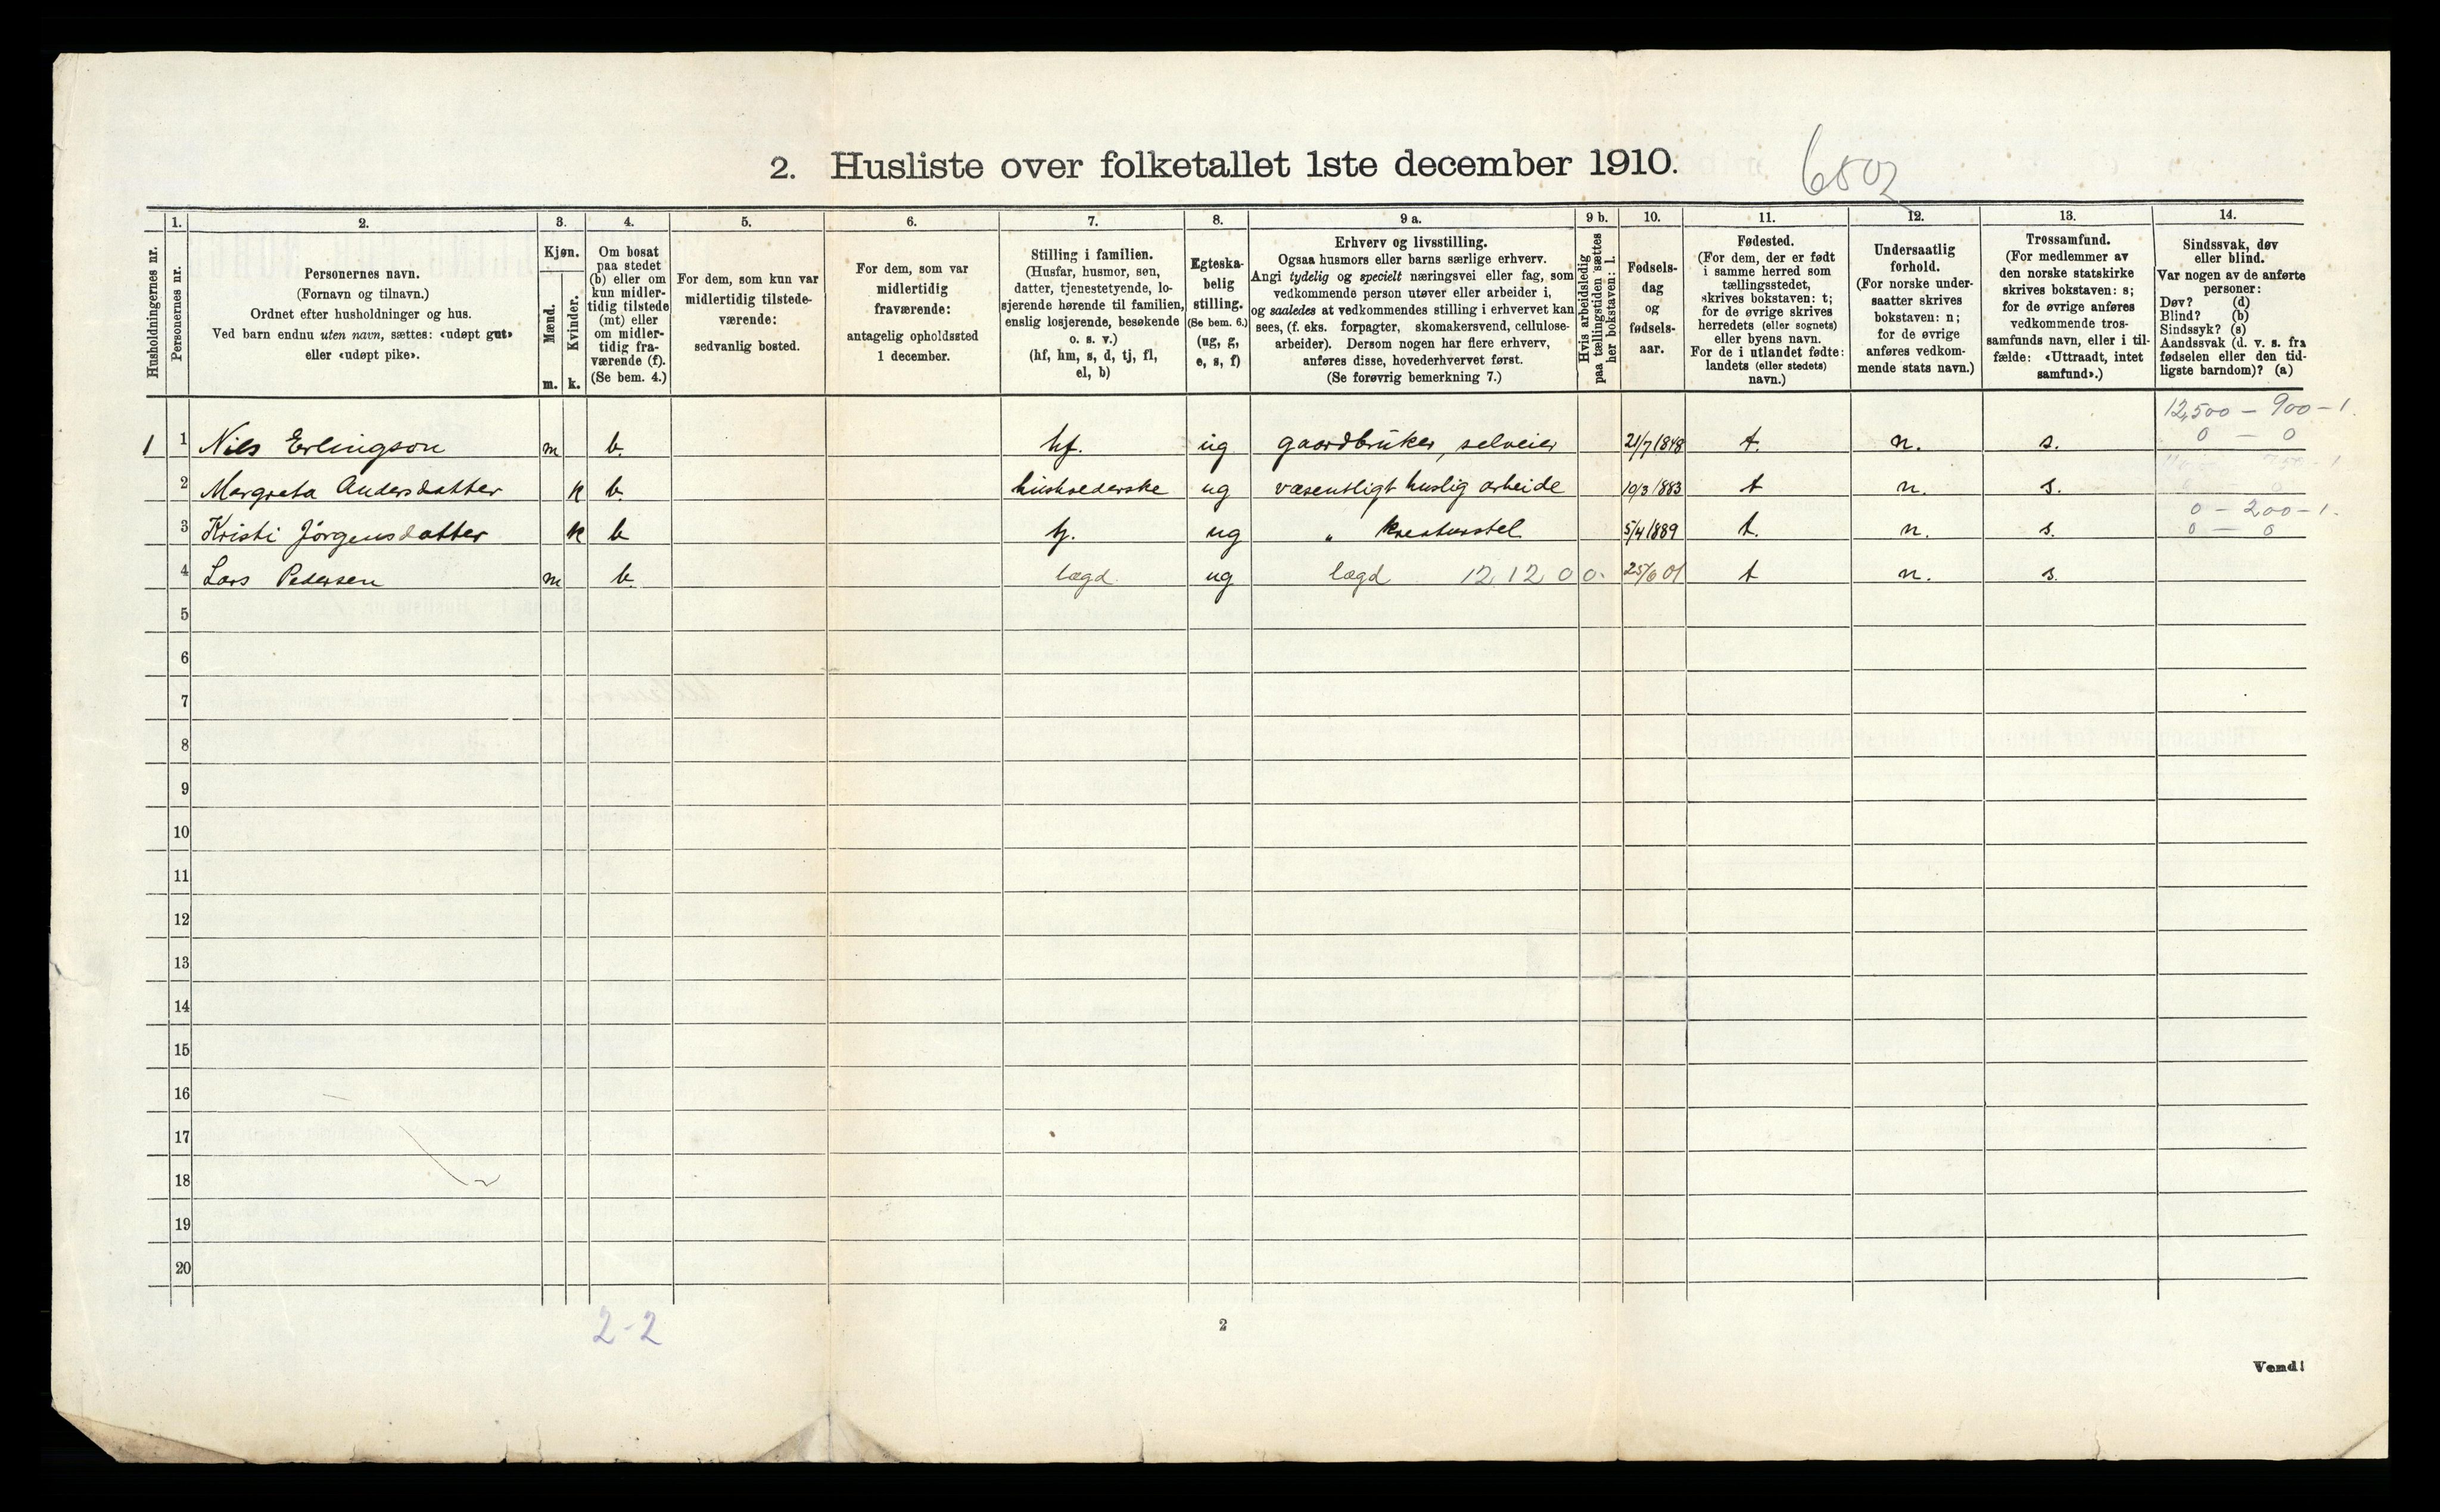 2. Husliste over folketallet 1ste december 1910.
6502
Husholdningernes nr.
1.
Personernes nr.
2.
Personernes navn.
(Fornavn og tilnavn.)
Ordnet efter husholdninger og hus.
Ved barn endnu uten navn, sættes: «udøpt gut»
eller «udøpt pike».
3.
Kjøn.
Mænd.
m.
Kvinder.
k.
4.
Om bosat
paa stedet
(b) eller om
kun midler-
tidig tilstede
(mt) eller
om midler-
tidig fra-
værende (f).
(Se bem. 4.)
5.
For dem, som kun var
midlertidig tilstede-
værende:
sedvanlig bosted.
6.
For dem, som var
midlertidig
fraværende:
antagelig opholdssted
1 december.
7.
Stilling i familien.
(Husfar, husmor, søn,
datter, tjenestetyende, lo-
sjerende hørende til familien,
enslig losjerende, besøkende
o. s. v.)
(hf, hm, s, d, tj, fl,
el, b)
8.
Egteska-
belig
stilling.
(Se bem. 6.)
(ug, g,
e, s, f)
9 a.
Erhverv og livsstilling.
Ogsaa husmors eller barns særlige erhverv.
Angi tydelig og specielt næringsvei eller fag, som
vedkommende person utøver eller arbeider i,
og saaledes at vedkommendes stilling i erhvervet kan
sees, (f. eks. forpagter, skomakersvend, cellulose-
arbeider). Dersom nogen har flere erhverv,
anføres disse, hovederhvervet først.
(Se forøvrig bemerkning 7.)
9 b.
Hvis arbeidsledig
paa tællingstiden sættes
her bokstaven: l.
10.
Fødsels-
dag
og
fødsels-
aar.
11.
Fødested.
(For dem, der er født
i samme herred som
tællingsstedet,
skrives bokstaven: t;
for de øvrige skrives
herredets (eller sognets)
eller byens navn.
For de i utlandet fødte:
landets (eller stedets)
navn.)
12.
Undersaatlig
forhold.
(For norske under-
saatter skrives
bokstaven: n;
for de øvrige
anføres vedkom-
mende stats navn.)
13.
Trossamfund.
(For medlemmer av
den norske statskirke
skrives bokstaven: s;
for de øvrige anføres
vedkommende tros-
samfunds navn, eller i til-
fælde: «Uttraadt, intet
samfund».)
14.
Sindssvak, døv
eller blind.
Var nogen av de anførte
personer:
Døv? (d)
Blind? (b)
Sindssyk? (s)
Aandssvak (d. v. s. fra
fødselen eller den tid-
ligste barndom)? (a)
12,500 – 900 – 1.
1 1 Nils Erlingson m b. hf. ug gaardbruker, selveier 21/7 1848 t. n. s. 0 – 0
2 Margreta Andersdatter k b. husholderske ug væsentligt huslig arbeide 19/3 1883 t n. s.
0 – 200 – 1.
3 Kristi Jörgensdatter k b tj. ug " kreaturstel 5/4 1889 t. n. s. 0 – 0
4 Lars Pedersen m b. lægd ug lægd 12 12 0 0. 25/6 01 t n. s.
5
6
7
8
9
10
11
12
13
14
15
16
17
18
19
20
2-2
2
Vend!